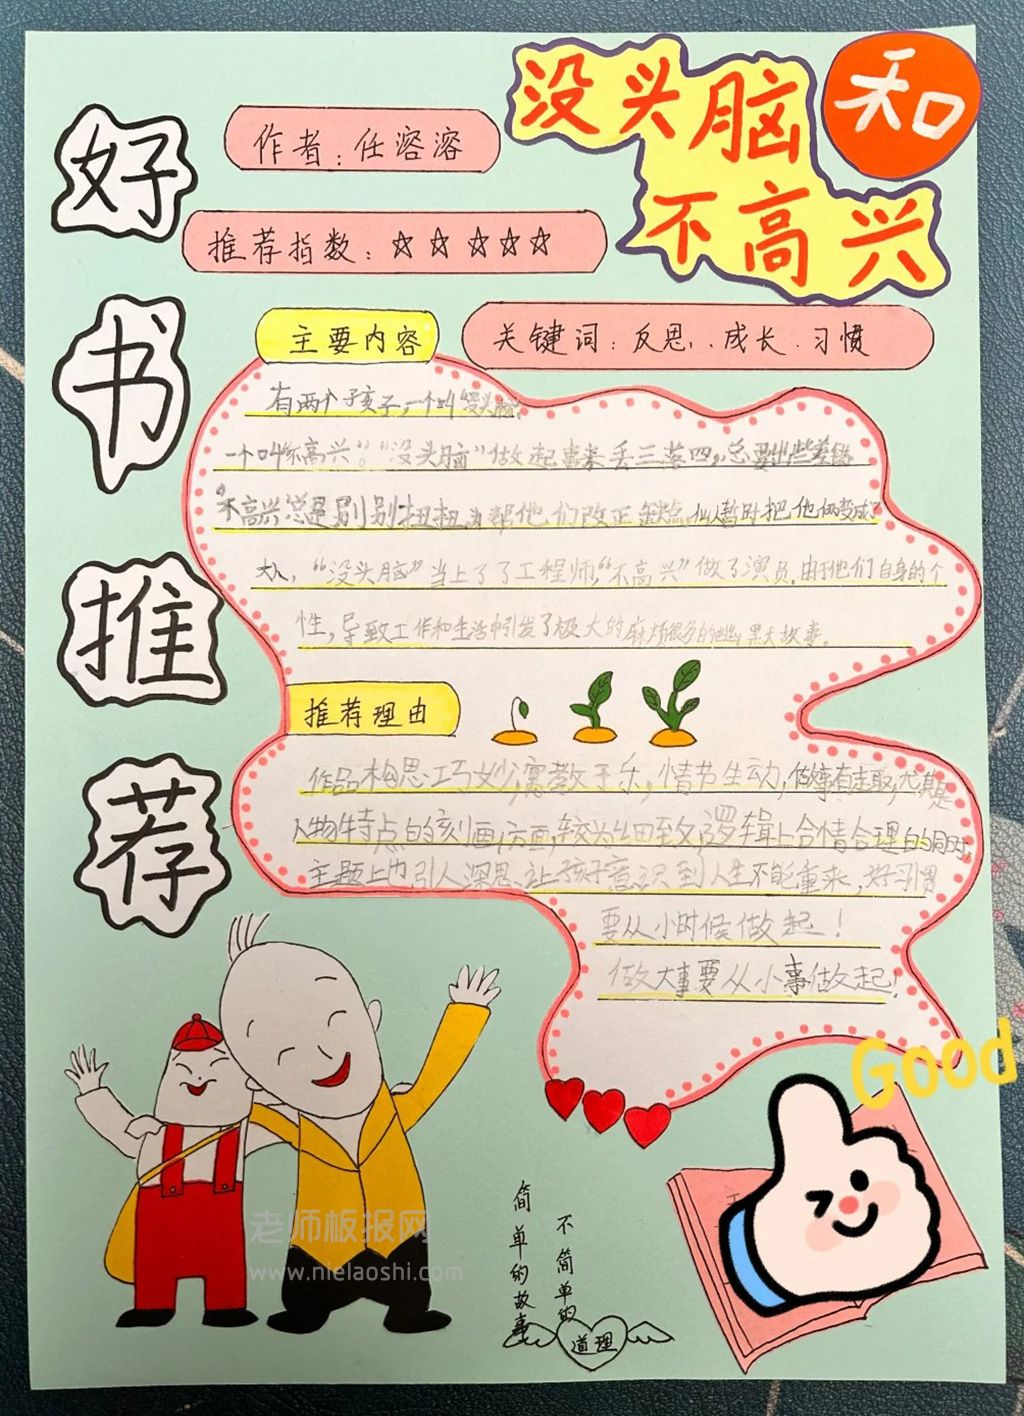 好书推荐
没头脑
和
不高兴
作者：任溶溶
推荐指数：☆☆☆☆☆
关键词：反思、成长、习惯
主要内容
有两个子孩子，一个叫没头脑，
一个叫"不高兴"。"没头脑"做起事来丢三落四，总要出些差错
"不高兴"总是别别扭扭，为帮他们改正缺点，仙人暂时把他俩变成了
大人，"没头脑"当上了了工程师，"不高兴"做了演员，由于他们自身的个
性，导致工作和生活中引发了极大的麻烦很多的幽默大故事。
推荐理由
作品构思巧妙，寓教于乐，情节生动，做事有趣，尤其是
人物特点的刻画方面，较为细致，逻辑上合情合理的同时，
主题上也引人深思，让孩子意识到人生不能重来，好习惯
要从小时候做起！
做大事要从小事做起！
Good
简单的故事
不简单的
道理
老师板报网
www.nielaoshi.com